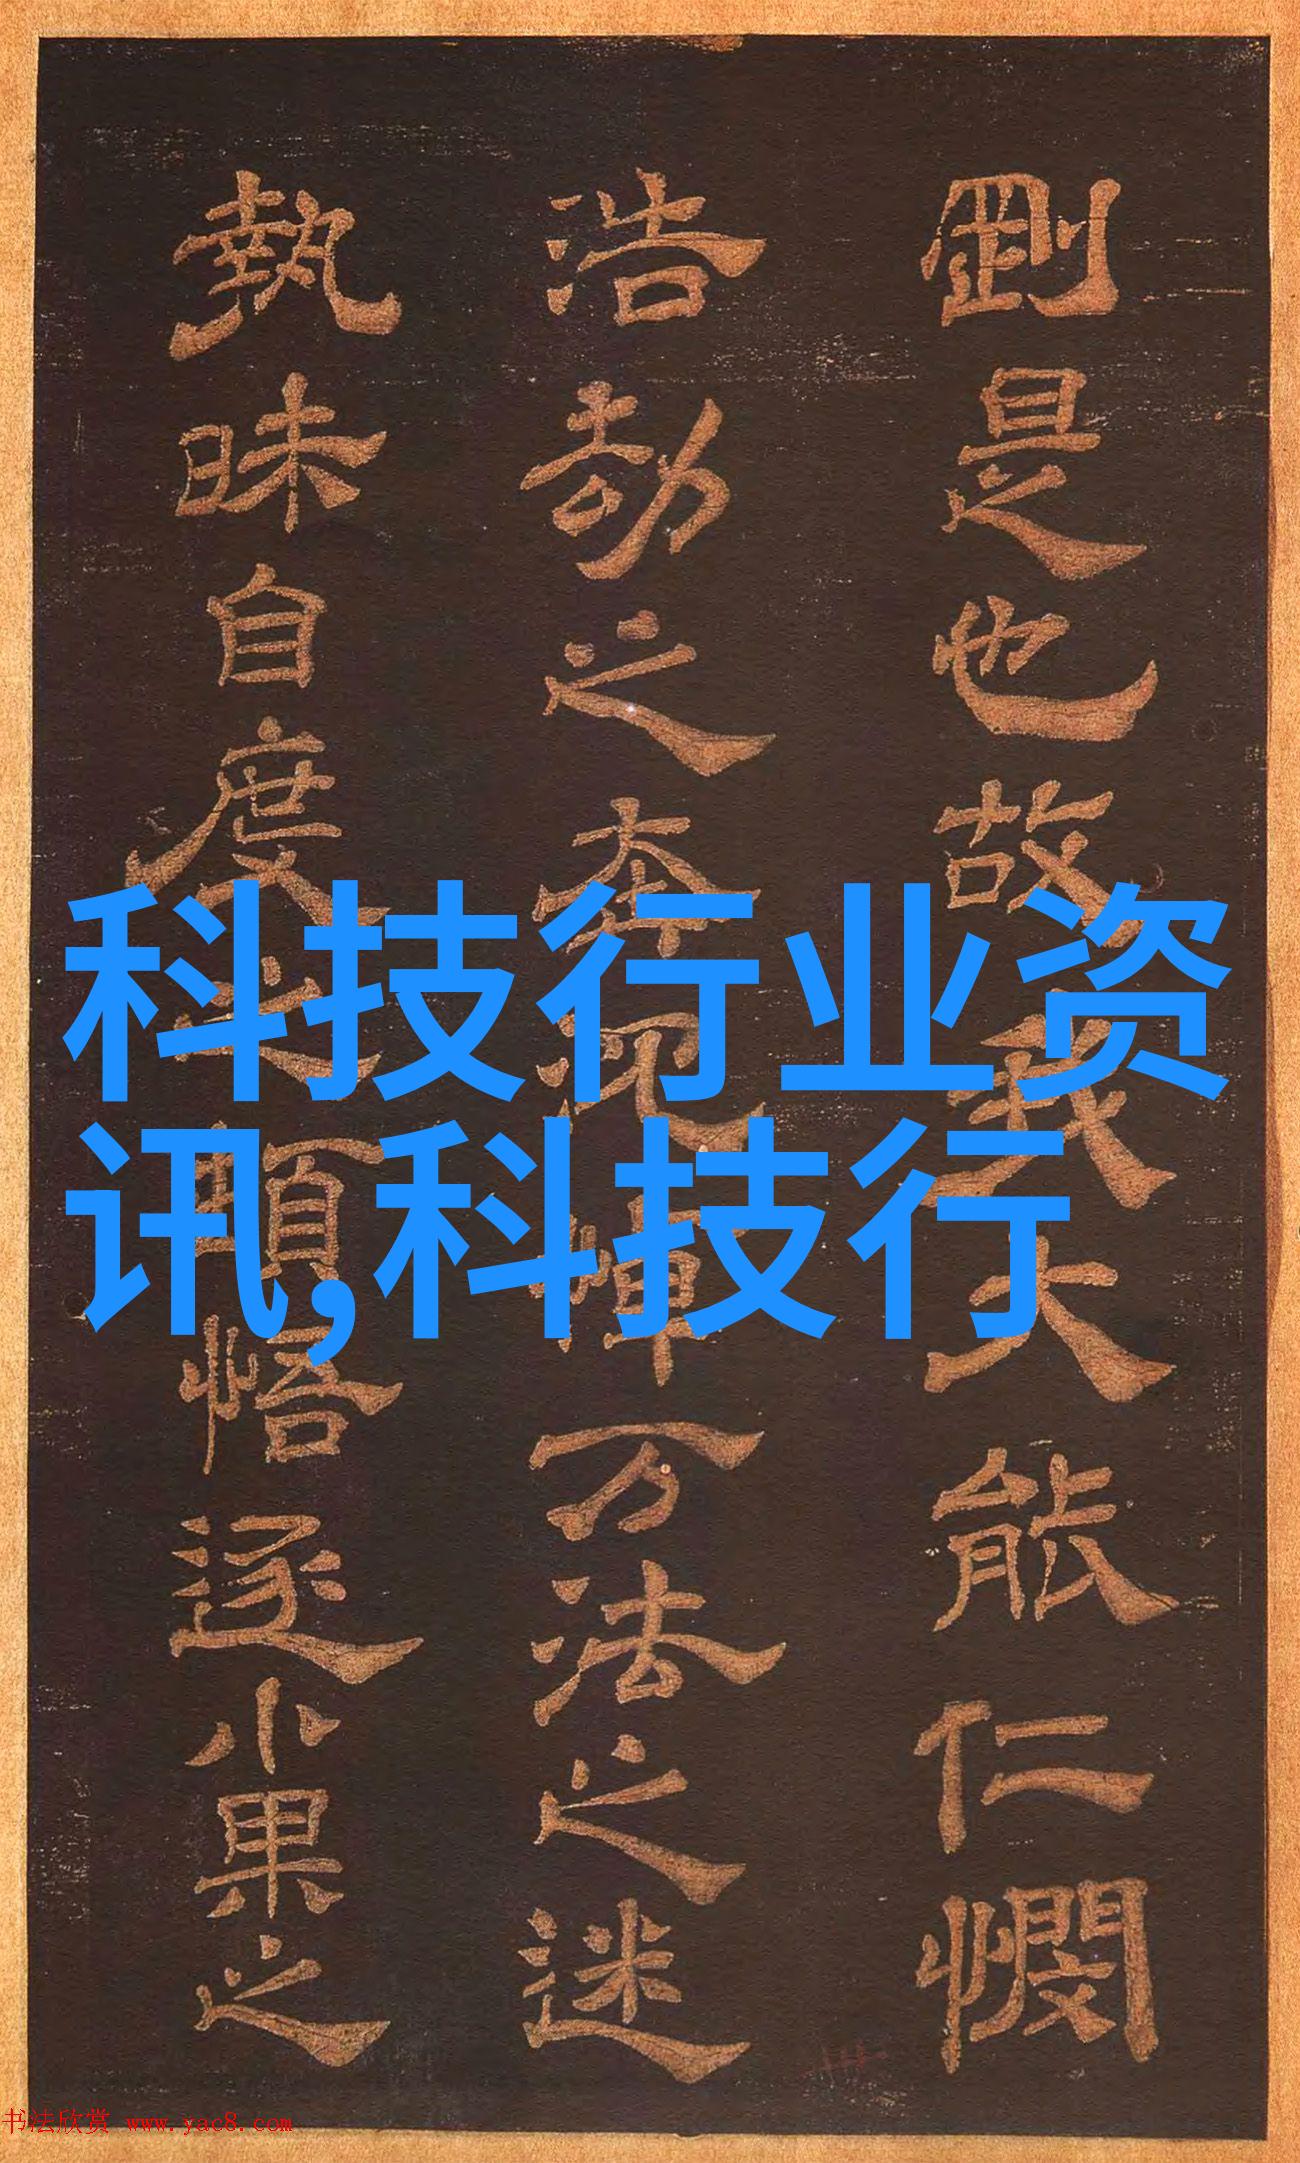 剛是也故我大能仁憫
浩劫之奔 万法之迷
執昧自度之頓悟逐小果之
科技行业资
讯,科技行
书法欣赏 www.yac8.com